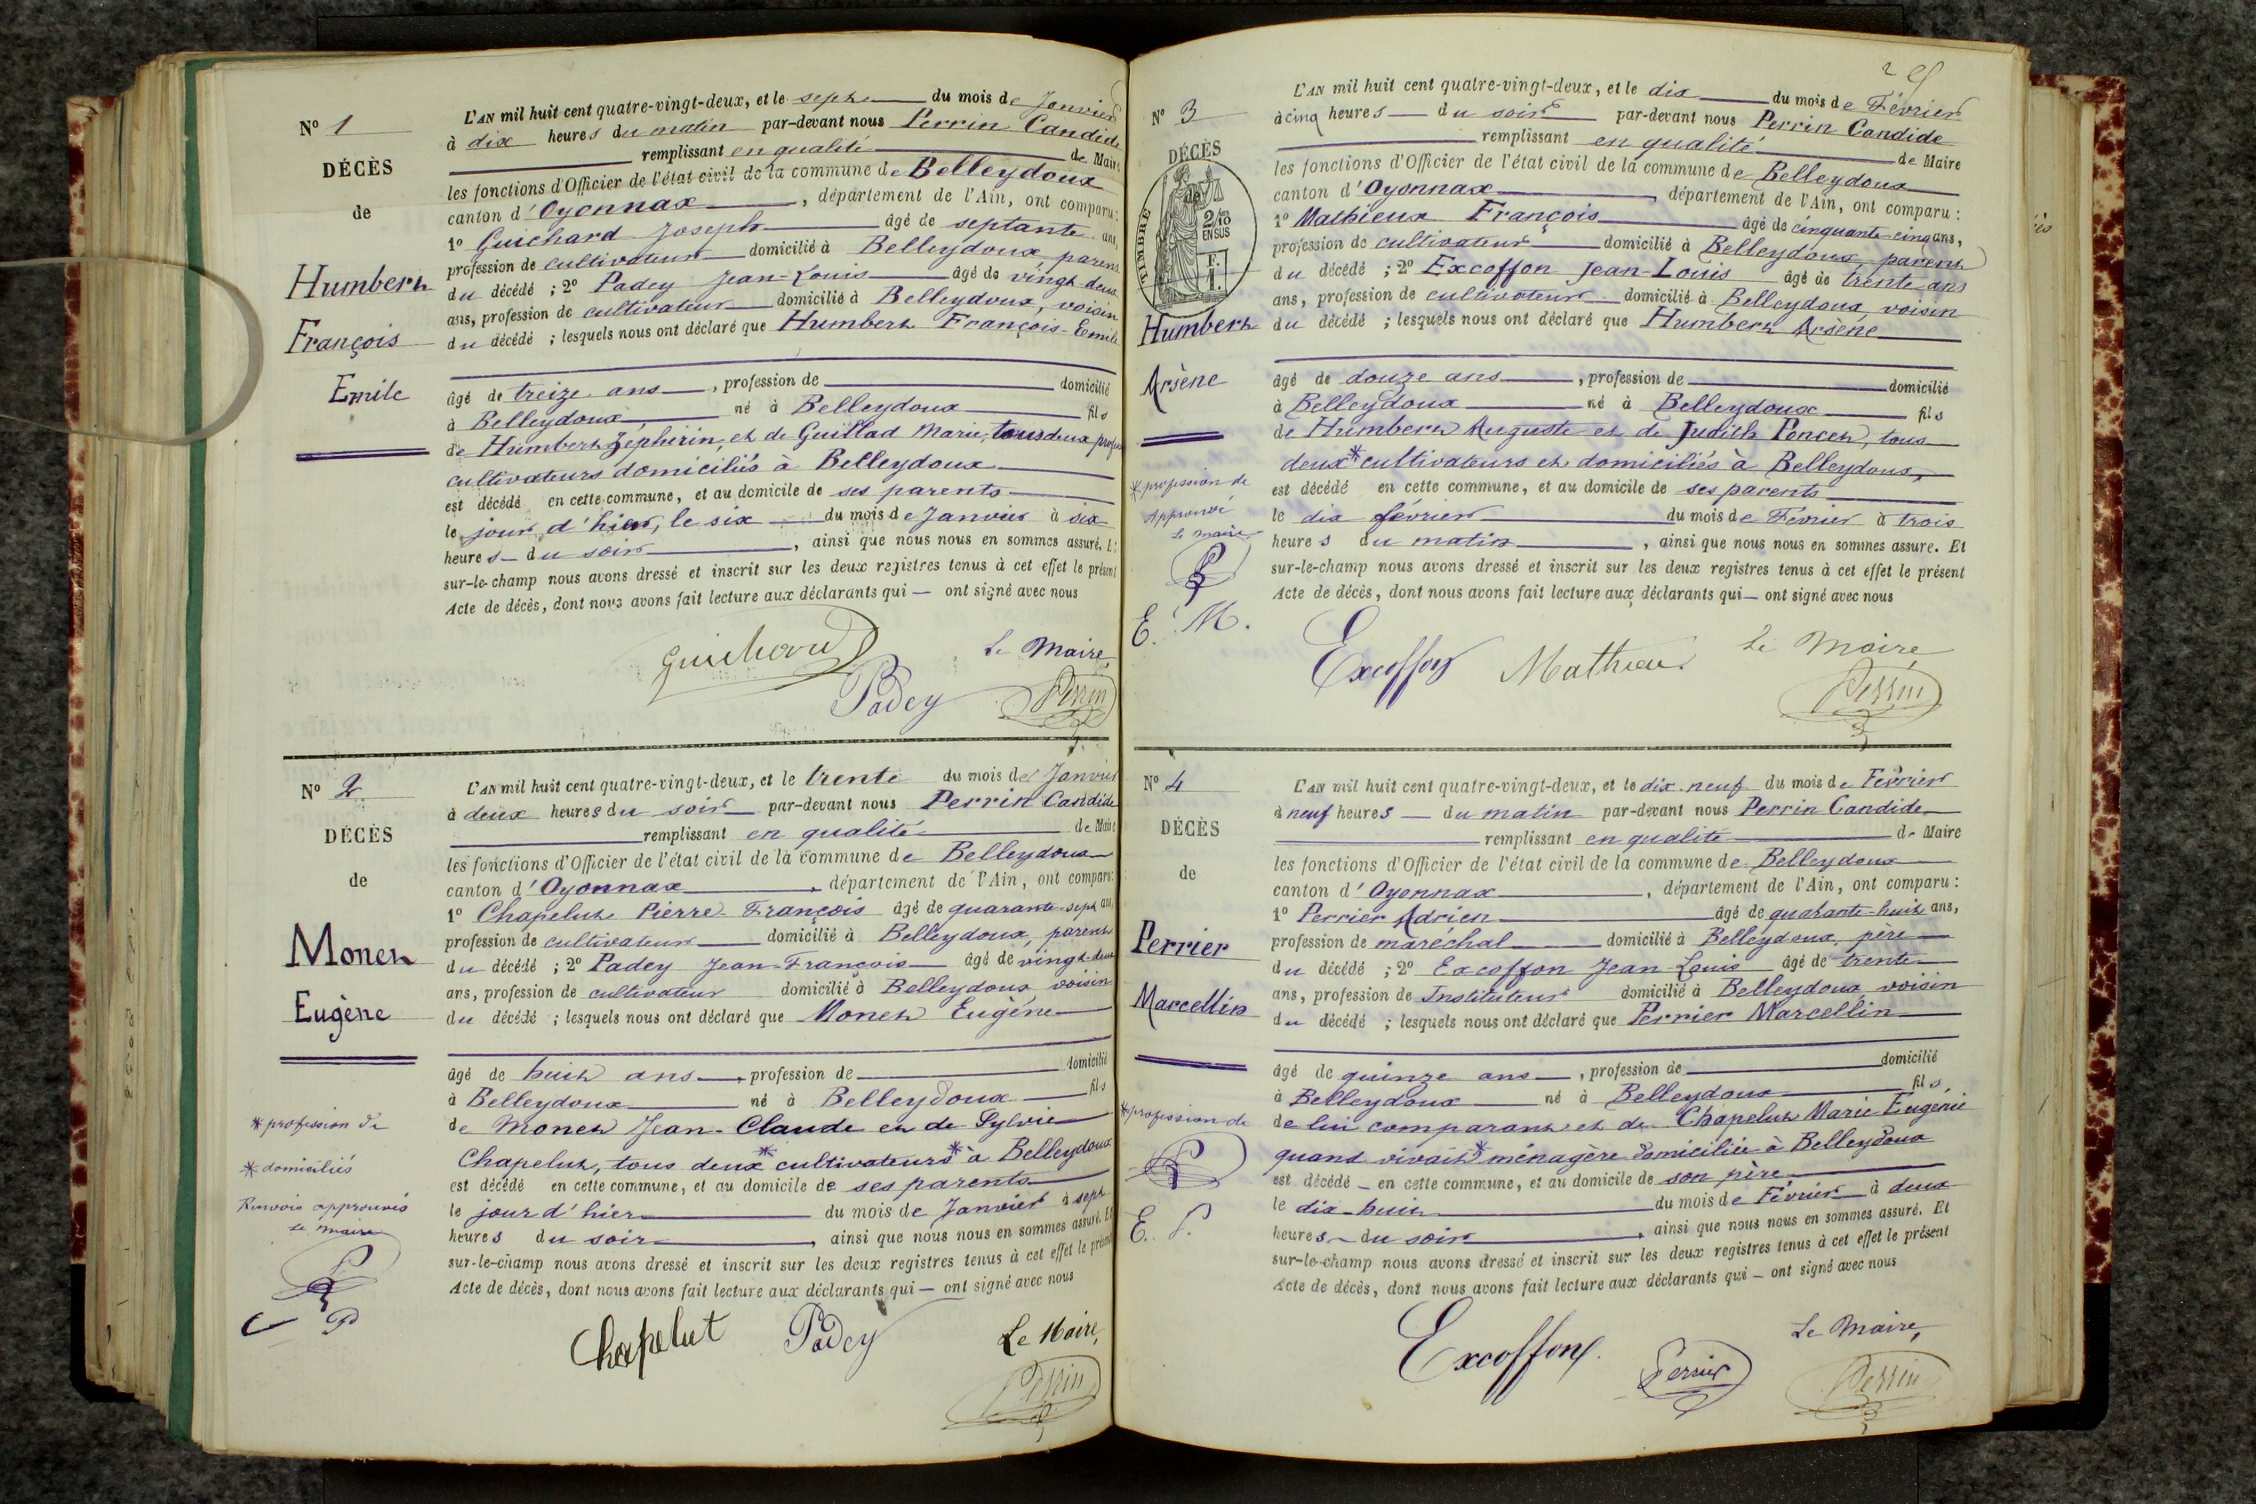 N° 1
DÉCÈS
de
Humbert
François
Emile
L'AN mil huit cent quatre-vingt-deux, et le sept du mois de Janvier
à dix heures du matin par-devant nous Perrin Candide
remplissant en qualité de Maire
les fonctions d'Officier de l'état civil de la commune de Belleydoux
canton d'Oyonnax, département de l'Ain, ont comparu :
1° Guichard Joseph âgé de septante ans,
profession de cultivateur domicilié à Belleydoux, parent
du décédé ; 2° Padey Jean-Louis âgé de vingt deux
ans, profession de cultivateur domicilié à Belleydoux, voisin
du décédé ; lesquels nous ont déclaré que Humbert François-Emile
âgé de treize ans, profession de domicilié
à Belleydoux né à Belleydoux fils
de Humbert Zéphirin, et de Guillad Marie, tous deux profes
cultivateurs domiciliés à Belleydoux
est décédé en cette commune, et au domicile de ses parents
le jour d'hier, le six du mois de Janvier à six
heures du soir, ainsi que nous nous en sommes assuré. Et
sur-le-champ nous avons dressé et inscrit sur les deux registres tenus à cet effet le présent
Acte de décès, dont nous avons fait lecture aux déclarants qui — ont signé avec nous
Guichard
Padey
Le Maire,
Perrin
N° 2
DÉCÈS
de
Monet
Eugène
* profession de
* domiciliés
Renvois approuvés
Le maire
P
P
L'AN mil huit cent quatre-vingt-deux, et le trente du mois de Janvier
à deux heures du soir par-devant nous Perrin Candide
remplissant en qualité de Maire
les fonctions d'Officier de l'état civil de la commune de Belleydoux
canton d'Oyonnax, département de l'Ain, ont comparu :
1° Chapelut Pierre-François âgé de quarante-sept ans,
profession de cultivateur domicilié à Belleydoux, parent
du décédé ; 2° Padey Jean-François âgé de vingt-deux
ans, profession de cultivateur domicilié à Belleydoux voisin
du décédé ; lesquels nous ont déclaré que Monet Eugène
âgé de huit ans, profession de domicilié
à Belleydoux né à Belleydoux fils
de Monet Jean-Claude et de Sylvie
Chapelut, tous deux * cultivateurs * à Belleydoux
est décédé en cette commune, et au domicile de ses parents
le jour d'hier du mois de Janvier à sept
heures du soir, ainsi que nous nous en sommes assuré. Et
sur-le-champ nous avons dressé et inscrit sur les deux registres tenus à cet effet le présent
Acte de décès, dont nous avons fait lecture aux déclarants qui — ont signé avec nous
Chapelut
Padey
Le Maire,
Perrin
2
N° 3
DÉCÈS
de
TIMBRE
2/10
EN SUS
F.
1.
Humbert
Arsène
* profession de
Approuvé
Le maire
P
E. M.
L'AN mil huit cent quatre-vingt-deux, et le dix du mois de Février
à cinq heures du soir par-devant nous Perrin Candide
remplissant en qualité de Maire
les fonctions d'Officier de l'état civil de la commune de Belleydoux
canton d'Oyonnax, département de l'Ain, ont comparu :
1° Mathieux François âgé de cinquante-cinq ans,
profession de cultivateur domicilié à Belleydoux, parent
du décédé ; 2° Excoffon Jean-Louis âgé de trente ans
ans, profession de cultivateur domicilié à Belleydoux, voisin
du décédé ; lesquels nous ont déclaré que Humbert Arsène
âgé de douze ans, profession de domicilié
à Belleydoux né à Belleydoux fils
de Humbert Auguste et de Judith Poncet, tous
deux * cultivateurs et domiciliés à Belleydoux,
est décédé en cette commune, et au domicile de ses parents
le dix février du mois de Février à trois
heures du matin, ainsi que nous nous en sommes assure. Et
sur-le-champ nous avons dressé et inscrit sur les deux registres tenus à cet effet le présent
Acte de décès, dont nous avons fait lecture aux déclarants qui — ont signé avec nous
Excoffon
Mathieu
Le Maire
Perrin
N° 4
DÉCÈS
de
Perrier
Marcellin
* profession de
P
E. P.
L'AN mil huit cent quatre-vingt-deux, et le dix-neuf du mois de Février
à neuf heures — du matin par-devant nous Perrin Candide
remplissant en qualité de Maire
les fonctions d'Officier de l'état civil de la commune de Belleydoux
canton d'Oyonnax, département de l'Ain, ont comparu :
1° Perrier Adrien âgé de quarante-huit ans,
profession de maréchal domicilié à Belleydoux, père
du décédé ; 2° Excoffon Jean-Louis âgé de trente
ans, profession de Instituteur domicilié à Belleydoux, voisin
du décédé ; lesquels nous ont déclaré que Perrier Marcellin
âgé de quinze ans, profession de domicilié
à Belleydoux né à Belleydoux fils
de lui comparant et de Chapelut Marie Eugénie
quand vivait * ménagère domiciliée à Belleydoux
est décédé — en cette commune, et au domicile de son père
le dix-huit du mois de Février à deux
heures — du soir, ainsi que nous nous en sommes assuré. Et
sur-le-champ nous avons dressé et inscrit sur les deux registres tenus à cet effet le présent
Acte de décès, dont nous avons fait lecture aux déclarants qui — ont signé avec nous
Excoffon
Perrier
Le Maire,
Perrin